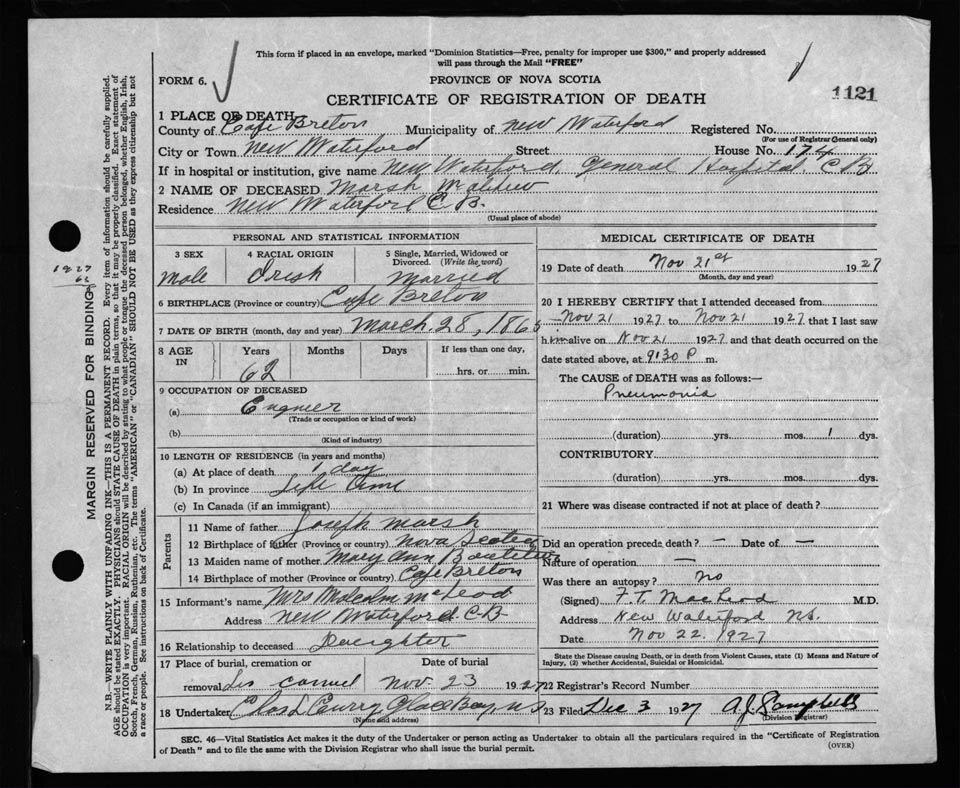 This form if placed in an envelope, marked "Dominion Statistics—Free, penalty for improper use $300," and properly addressed
will pass through the Mail "FREE"
FORM 6.
PROVINCE OF NOVA SCOTIA
CERTIFICATE OF REGISTRATION OF DEATH
1121
1 PLACE OF DEATH
County of Cape Breton Municipality of New Waterford Registered No.
(For use of Registrar General only)
City or Town New Waterford Street House No. 174
If in hospital or institution, give name New Waterford General Hospital. C B
2 NAME OF DECEASED Marsh
Residence New Waterford C.B.
(Usual place of abode)
PERSONAL AND STATISTICAL INFORMATION
3 SEX
4 RACIAL ORIGIN
5 Single, Married, Widowed or
Divorced. (Write the word)
male Irish Married
6 BIRTHPLACE (Province or country) Cape Breton
7 DATE OF BIRTH (month, day and year) March 28, 1865
8 AGE
IN
Years Months Days
If less than one day,
62
hrs. or min.
9 OCCUPATION OF DECEASED
(a) Engineer
(Trade or occupation or kind of work)
(b)
(Kind of industry)
10 LENGTH OF RESIDENCE (in years and months)
(a) At place of death 1 day
(b) In province Life time
(c) In Canada (if an immigrant)
Parents
11 Name of father Joseph Marsh
12 Birthplace of father (Province or country) Nova Scotia
13 Maiden name of mother Mary Ann
14 Birthplace of mother (Province or country) Cape Breton
15 Informant's name Mrs Malcolm McLeod
Address New Waterford C.B
16 Relationship to deceased Daughter
17 Place of burial, cremation or
Date of burial
removal Nov. 23 1927
18 Undertaker Chas L Curry, Glace Bay, N.S.
(Name and address)
MEDICAL CERTIFICATE OF DEATH
19 Date of death Nov 21st 1927
(Month, day and year)
20 I HEREBY CERTIFY that I attended deceased from
Nov 21 1927 to Nov 21 1927 that I last saw
him alive on Nov 21 1927 and that death occurred on the
date stated above, at 9:30 P m.
The CAUSE of DEATH was as follows:—
Pneumonia
(duration) yrs. mos. 1 dys.
CONTRIBUTORY
(duration) yrs. mos. dys.
21 Where was disease contracted if not at place of death?
Did an operation precede death? — Date of —
Nature of operation —
Was there an autopsy? no
(Signed) F.T. MacLeod M.D.
Address New Waterford NS.
Date Nov 22. 1927
State the Disease causing Death, or in death from Violent Causes, state (1) Means and Nature of
Injury, (2) whether Accidental, Suicidal or Homicidal.
22 Registrar's Record Number
23 Filed Dec 3 1927 A.J. Campbell
(Division Registrar)
SEC. 46—Vital Statistics Act makes it the duty of the Undertaker or person acting as Undertaker to obtain all the particulars required in the "Certificate of Registration
of Death" and to file the same with the Division Registrar who shall issue the burial permit.
(OVER)
MARGIN RESERVED FOR BINDING
N.B.—WRITE PLAINLY WITH UNFADING INK—THIS IS A PERMANENT RECORD. Every item of information should be carefully supplied.
AGE should be stated EXACTLY. PHYSICIANS should STATE CAUSE OF DEATH in plain terms, so that it may be properly classified. Exact statement of
OCCUPATION is very important. RACIAL ORIGIN will be described by stating to what people or tongue the deceased person belonged, whether English, Irish,
Scotch, French, German, Russian, Ruthenian, etc. The terms "AMERICAN" or "CANADIAN" SHOULD NOT BE USED as they express citizenship but not
a race or people. See instructions on back of Certificate.
1927
62